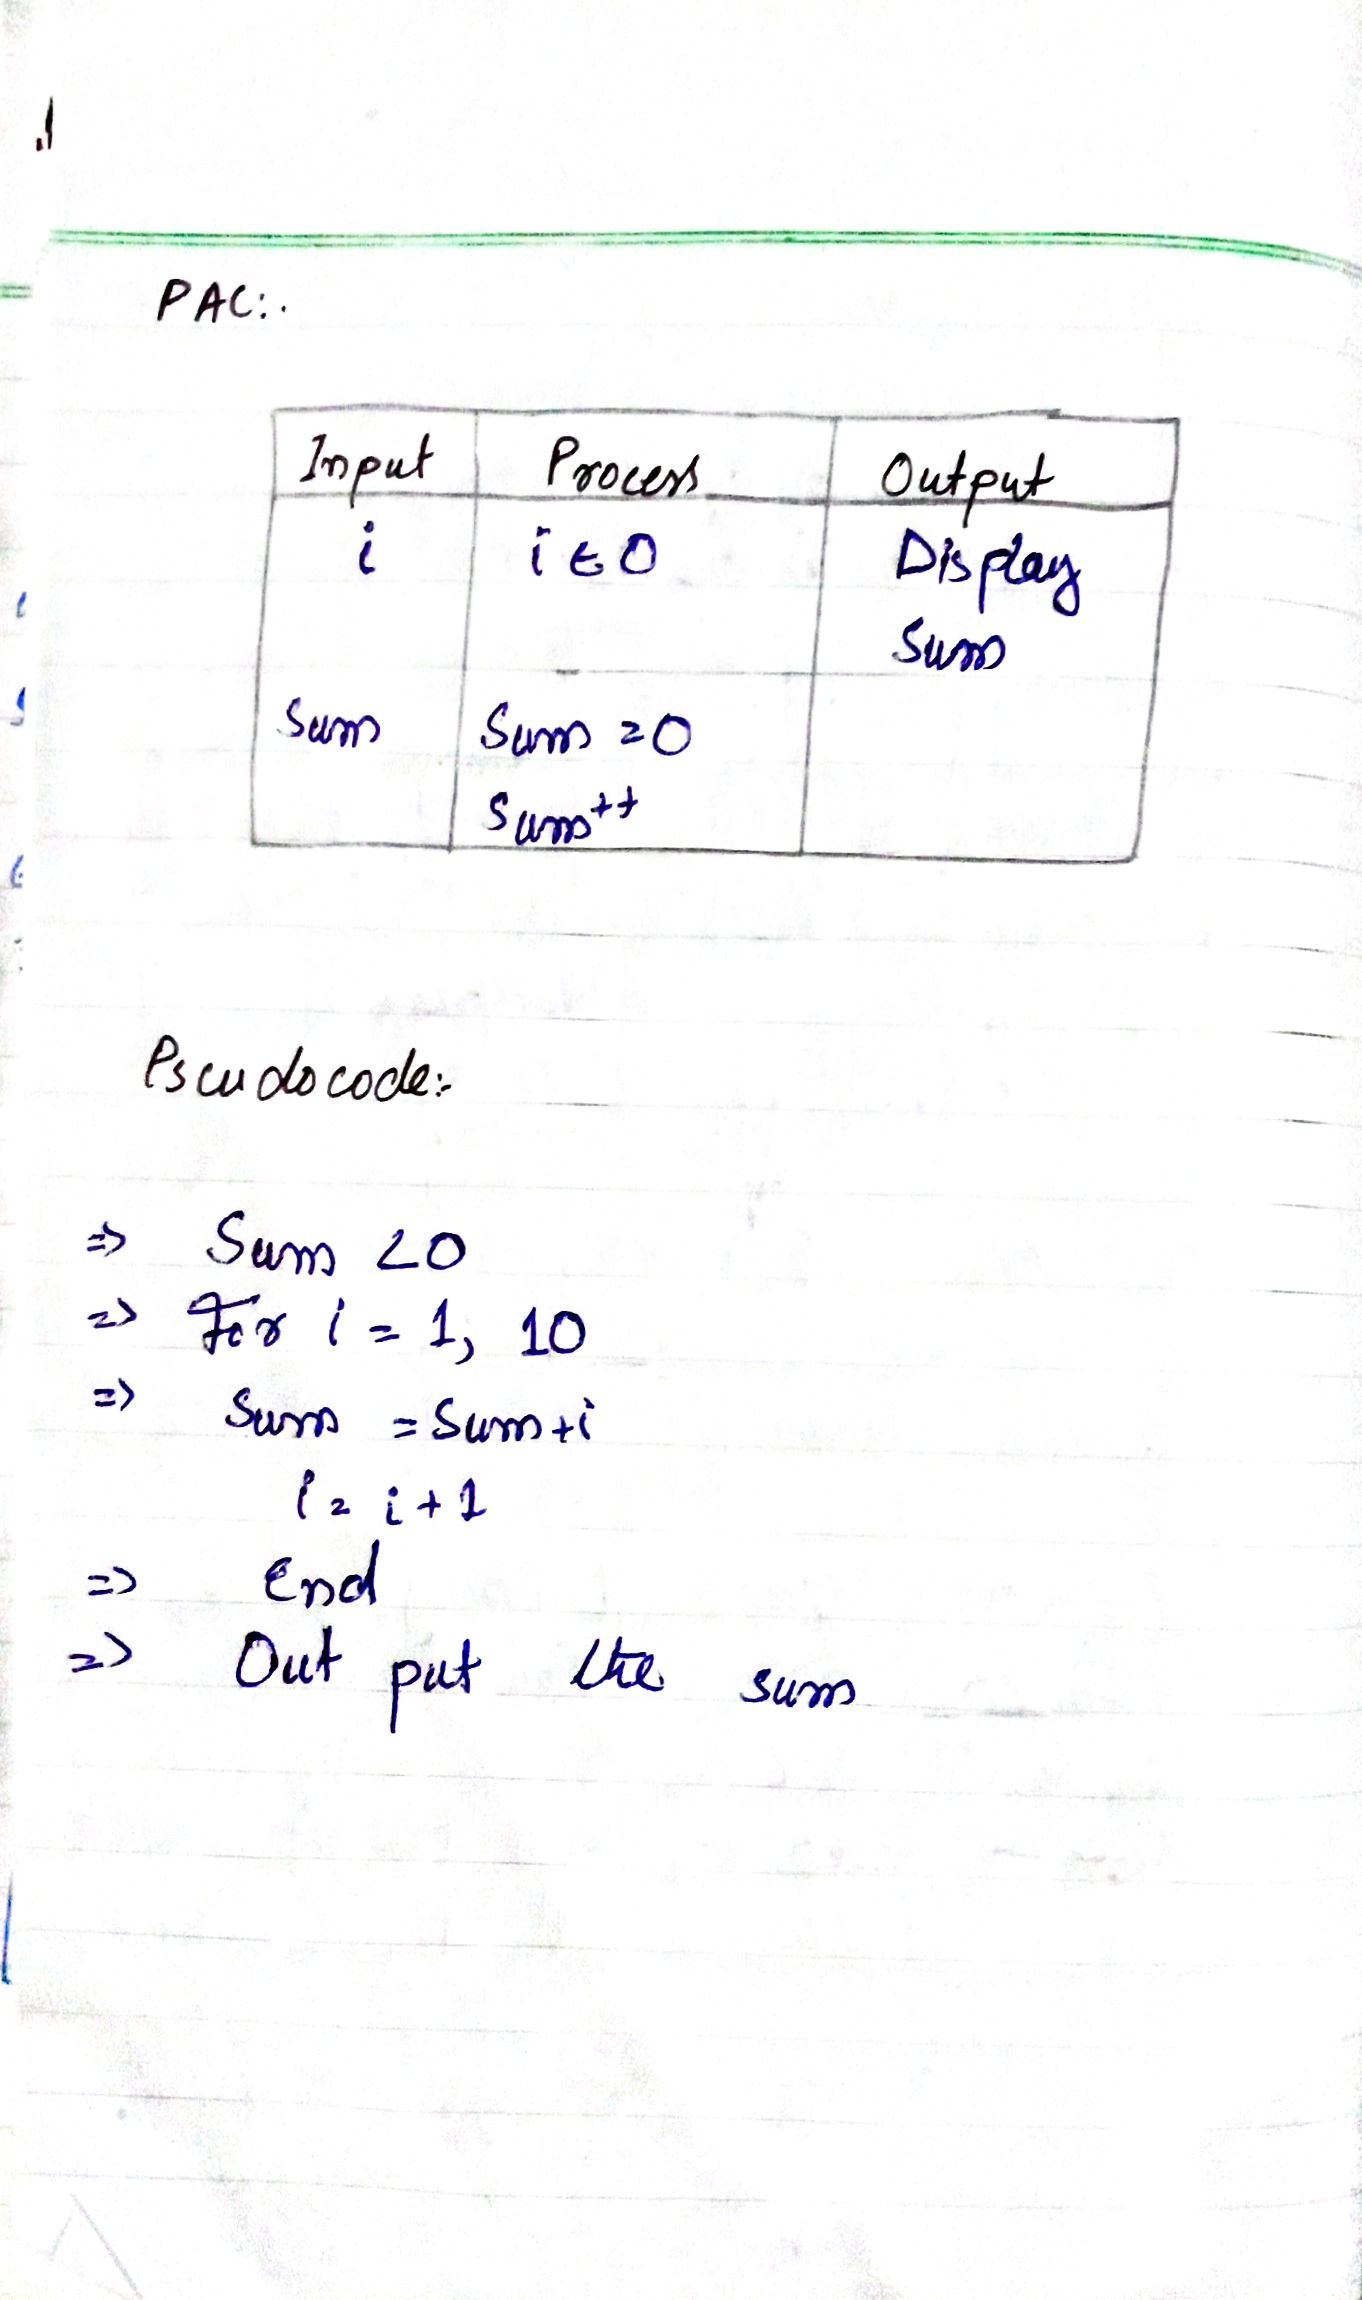 PAC:.
Input Process Output
i i ← 0 Display
Sum
Sum Sum = 0
Sum++
Pseudocode:-
=> Sum < 0
=> For i = 1, 10
=> Sum = Sum + i
i = i + 1
=> End
=> Out put the sum